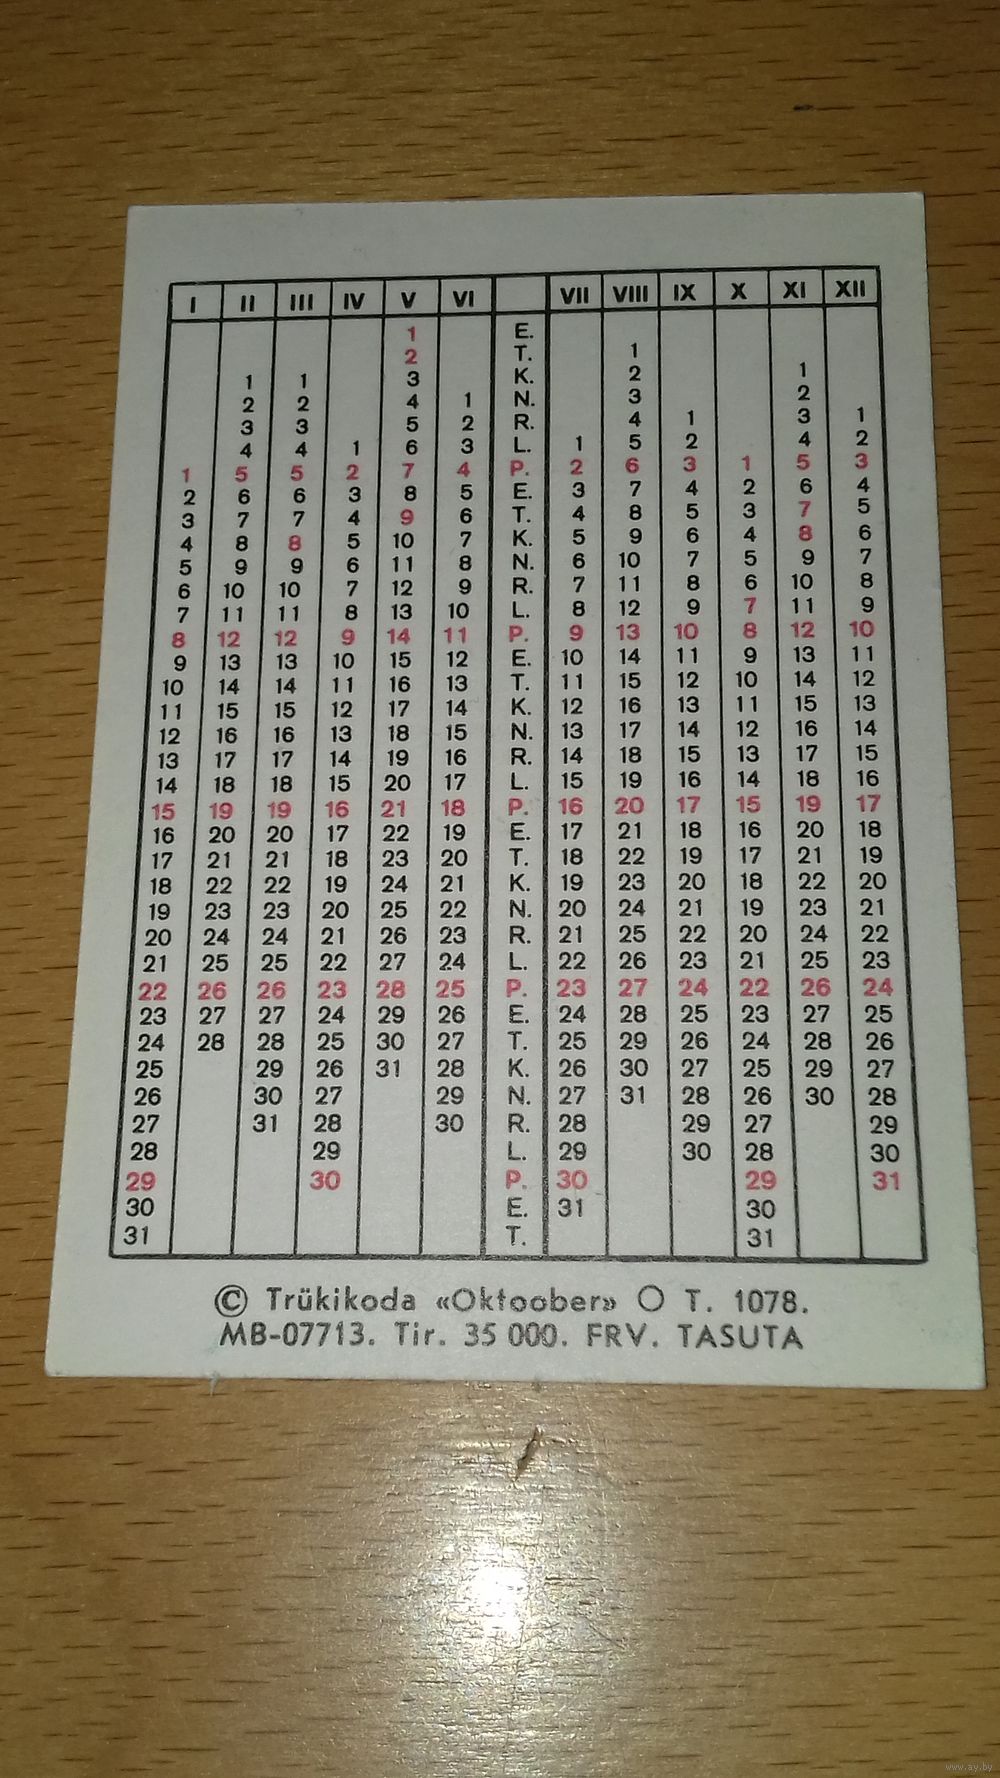 I II III IV V VI VII VIII IX X XI XII
1 E.
2 T. 1
1 1 3 K. 2 1
2 2 4 1 N. 3 2
3 3 5 2 R. 4 1 3 1
4 4 1 6 3 L. 1 5 2 4 2
1 5 5 2 7 4 P. 2 6 3 1 5 3
2 6 6 3 8 5 E. 3 7 4 2 6 4
3 7 7 4 9 6 T. 4 8 5 3 7 5
4 8 8 5 10 7 K. 5 9 6 4 8 6
5 9 9 6 11 8 N. 6 10 7 5 9 7
6 10 10 7 12 9 R. 7 11 8 6 10 8
7 11 11 8 13 10 L. 8 12 9 7 11 9
8 12 12 9 14 11 P. 9 13 10 8 12 10
9 13 13 10 15 12 E. 10 14 11 9 13 11
10 14 14 11 16 13 T. 11 15 12 10 14 12
11 15 15 12 17 14 K. 12 16 13 11 15 13
12 16 16 13 18 15 N. 13 17 14 12 16 14
13 17 17 14 19 16 R. 14 18 15 13 17 15
14 18 18 15 20 17 L. 15 19 16 14 18 16
15 19 19 16 21 18 P. 16 20 17 15 19 17
16 20 20 17 22 19 E. 17 21 18 16 20 18
17 21 21 18 23 20 T. 18 22 19 17 21 19
18 22 22 19 24 21 K. 19 23 20 18 22 20
19 23 23 20 25 22 N. 20 24 21 19 23 21
20 24 24 21 26 23 R. 21 25 22 20 24 22
21 25 25 22 27 24 L. 22 26 23 21 25 23
22 26 26 23 28 25 P. 23 27 24 22 26 24
23 27 27 24 29 26 E. 24 28 25 23 27 25
24 28 28 25 30 27 T. 25 29 26 24 28 26
25 29 26 31 28 K. 26 30 27 25 29 27
26 30 27 29 N. 27 31 28 26 30 28
27 31 28 30 R. 28 29 27 29
28 29 L. 29 30 28 30
29 30 P. 30 29 31
30 E. 31 30
31 T. 31
© Trükikoda «Oktoober» O T. 1078.
MB-07713. Tir. 35 000. FRV. TASUTA
www.ay.by